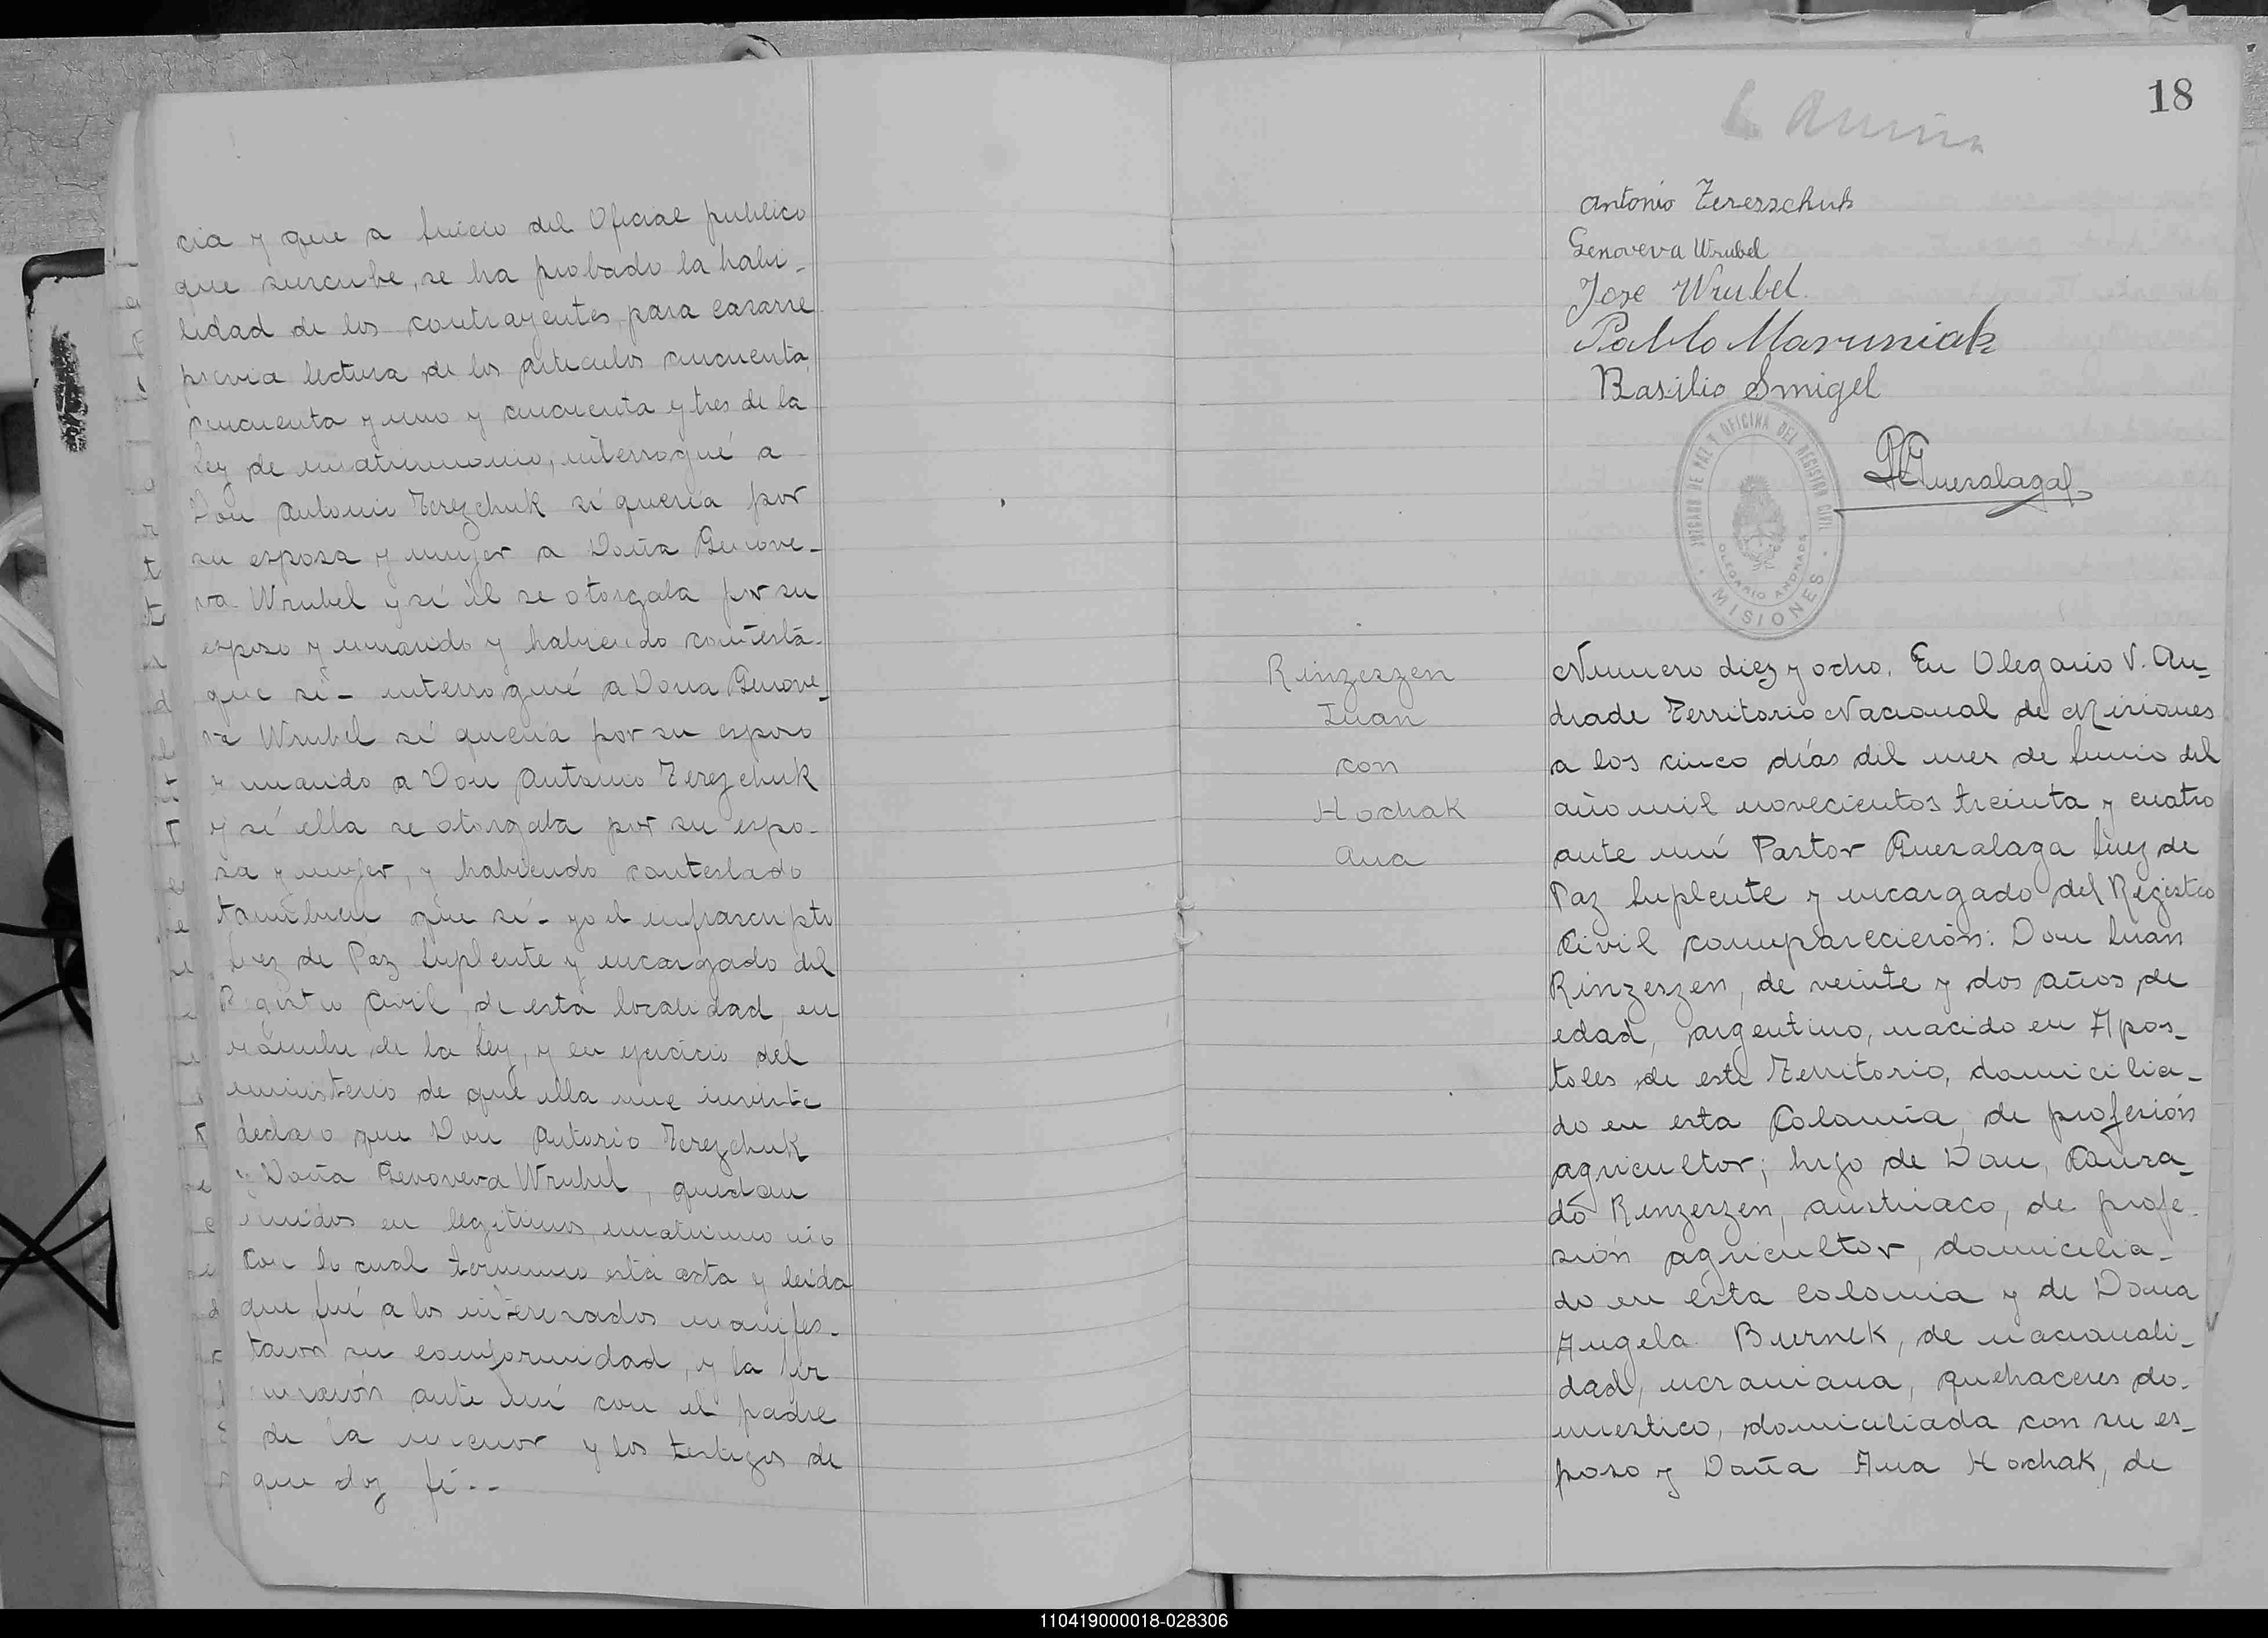 cia y que a Juicio del Oficial publico
que suscribe, se ha probado la habi-
lidad de los contrayentes, para casarse
previa lectura de los articulos cincuenta,
cincuenta y uno y cincuenta y tres de la
Ley de matrimonio, interrogué a
Don Antonio Terezchuk si queria por
su esposa y mujer a Doña Genove-
va Wrubel y si él se otorgaba por su
esposo y marido y habiendo contesta-
que si- interrogué a Dona Genove-
va Wrubel si queria por su esposo
y marido a Don Antonio Terezchuk
y si ella se otorgaba por su espo-
sa y mujer, y habiendo contestado
tambien que si- yo el infrascripto
Juez de Paz Suplente y encargado del
Registro Civil de esta localidad, en
nombre de la Ley, y en ejercicio del
ministerio de que ella me inviste
declaro que Don Antonio Terezchuk
y Doña Genoveva Wrubel, quedan
unidos en legitimos matrimonio
Con lo cual termino esta acta y leida
que fué a los interesados manifes-
taron su conformidad, y la fir
maron ante mi con el padre
de la menor y los testigos de
que doy fé--
18
Antonio Terezschuk
Genoveva Wrubel
Jose Wrubel.
Pablo Maruniak
Basilio Smigel
P Guesalaga
JUZGADO DE PAZ Y OFICINA DEL REGISTRO CIVIL
OLEGARIO ANDRADE
MISIONES
Rinzeszen
Juan
con
Hochak
Ana
Numero diez y ocho. En Olegario V. An-
drade Territorio Nacional de Misiones
a los cinco días del mes de Junio del
año mil novecientos treinta y cuatro
ante mi Pastor Guesalaga Juez de
Paz Suplente y encargado del Registro
Civil comparecierón: Don Juan
Rinzeszen, de veinte y dos años de
edad, argentino, nacido en Apos-
toles de este Territorio, domicilia-
do en esta Colonia, de profesión
agricultor; hijo de Don, Conra-
do Rinzeszen, austriaco, de profe-
sión agricultor, domicilia-
do en ésta colonia y de Dona
Angela Burnek, de nacionali-
dad, ucraniana, quehaceres do-
mestico, domiciliada con su es-
poso y Doña Ana Hochak, de
110419000018-028306